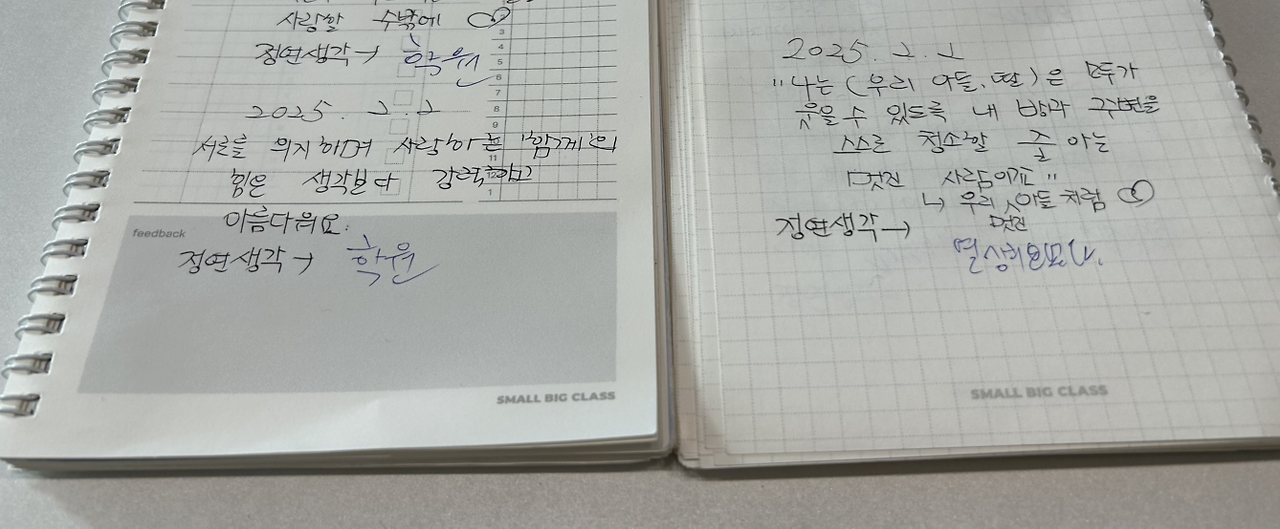 사랑할 수밖에
정연생각→ 학원
2025. 2. 2
서로를 의지하며 사랑하는 "함께"의
힘은 생각보다 강력하고
아름다워요.
정연생각→ 학원
feedback
3
4
5
6
7
8
9
11
12
1
SMALL BIG CLASS
2025. 2. 2
"나는 (우리 아들, 딸)은 모두가
웃을 수 있도록 내 방과 주변을
스스로 청소할 줄 아는
멋진 사람이고"
↳ 우리 멋진 아들 처럼
정연생각→
SMALL BIG CLASS